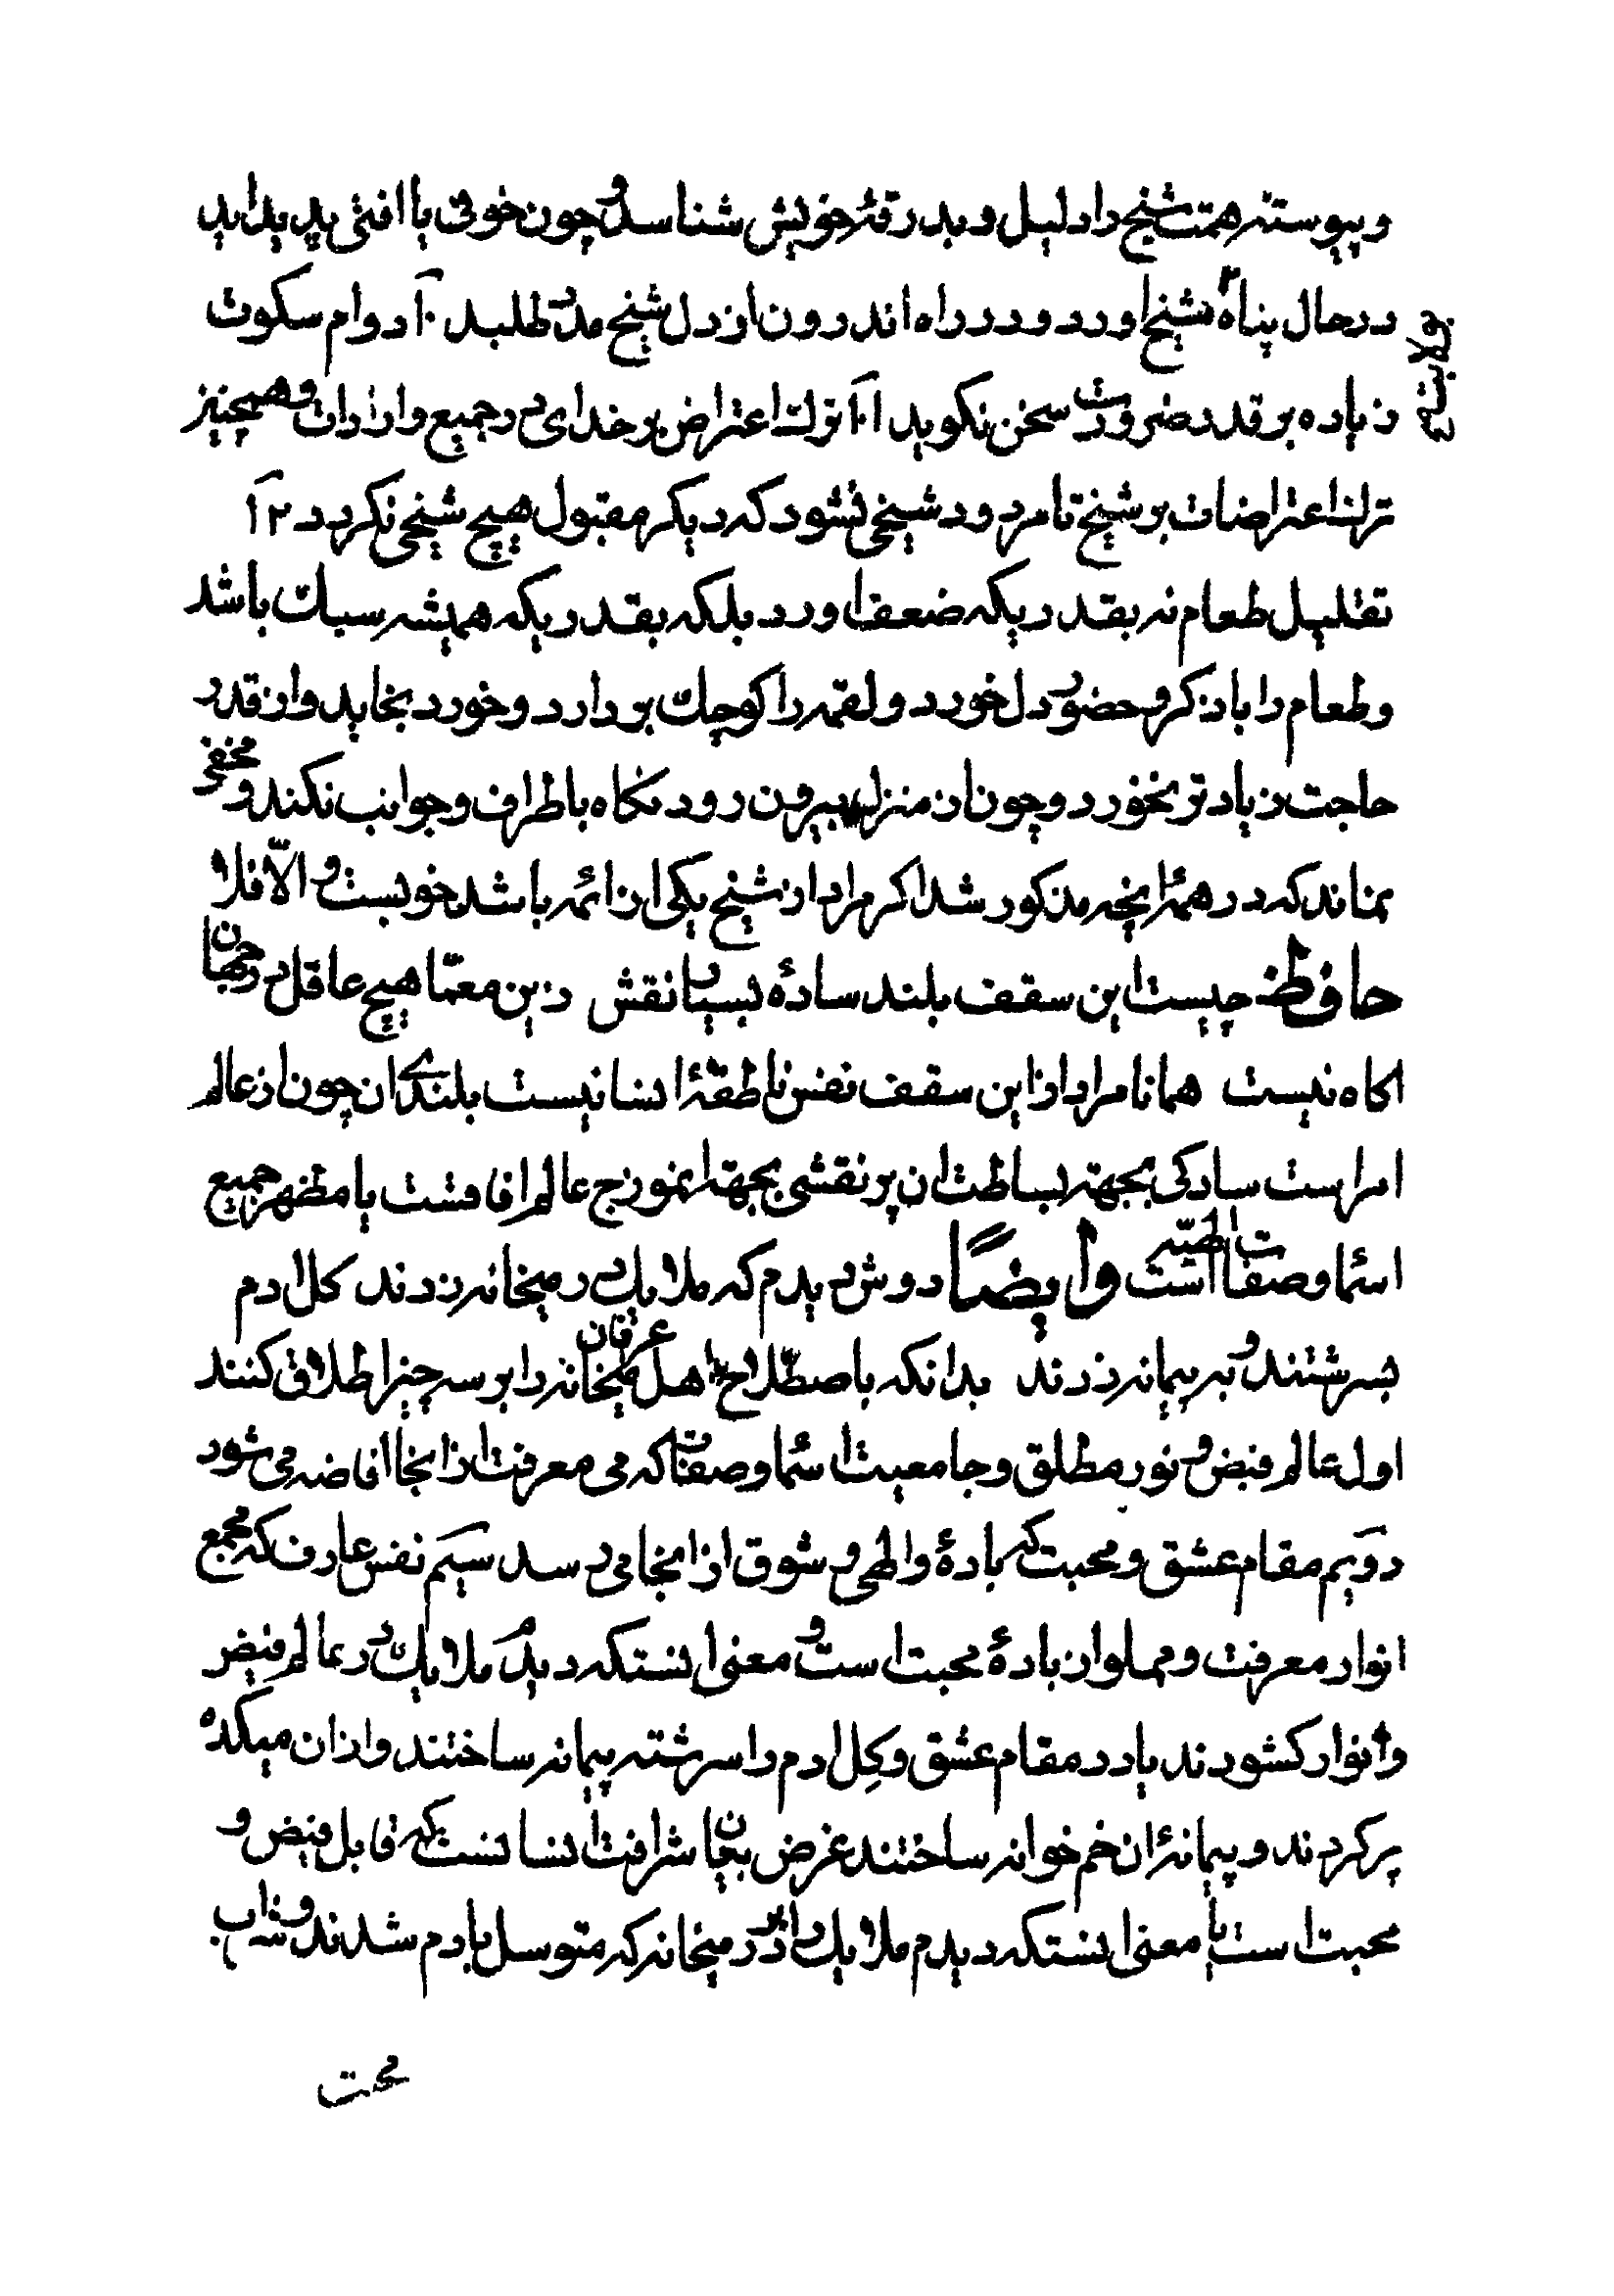 و پیوسته همت شیخ را دلیل و بدرقهٔ خویش شناسد و چون خوفی یا افتی پدید اید
در حال پناه بشیخ اورد و در راه اندرون از دل شیخ مدد طلبد ۱۰ دوام سکوت
بولایت شیخ
زیاده بر قدر ضرورت سخن نکوید ۱۱ ترك اعتراض بر خدای در جمیع واردات و همچنین
ترك اعتراضات بر شیخ تا مردود شیخی نشود که دیکر مقبول هیچ شیخی نکردد ۱۲
تقلیل طعام نه بقدریکه ضعف اورد بلکه بقدریکه همیشه سبك باشد
و طعام را با ذکر و حضور دل خورد و لقمه را کوچك بردارد و خورد بخاید و از قدر
حاجت زیادتر نخورد و چون از منزل بیرون رود نکاه باطراف و جوانب نکند و مخفی
نماند که در همهٔ انچه مذکور شد اکر مراد از شیخ یکی از ائمه باشد خوبست و الّا فلا
حافظ چیست این سقف بلند سادهٔ بسیار نقش زین معمّا هیچ عاقل در جهان
اکاه نیست همانا مراد از این سقف نفس ناطقهٔ انسانیست بلندی ان چون از عالم
امراست سادکی بجهتة بساطت ان پر نقشی بجهتة انموزج عالم افاقست یا مظهر جمیع
اسما و صفات الهیّه است و ایضًا دوش دیدم که ملایك در میخانه زدند کل ادم
بسرشتند و به پیمانه زدند بدانکه باصطلاح اهل عرفان میخانه را بر سه چیز اطلاق کنند
اول عالم فیض و نور مطلق و جامعیت اسما و صفات که می معرفت از انجا افاضه می شود
دویم مقام عشق و محبت که بادهٔ والهی و شوق از انجا می رسد سیم نفس عارف که مجمع
انوار معرفت و مملو از بادهٔ محبت است و معنی انستکه دیدم ملایك در عالم فیض
و انوار کشودند یا در مقام عشق و کِل ادم را سرشته پیمانه ساختند و از ان میکده
پر کردند و پیمانهٔ ان خم خوانه ساختند غرض بیان شرافت انسانست که قابل فیض و
محبت است یا معنی انستکه دیدم ملایك را بر در میخانه که متوسل بادم شدند و شراب
محبت